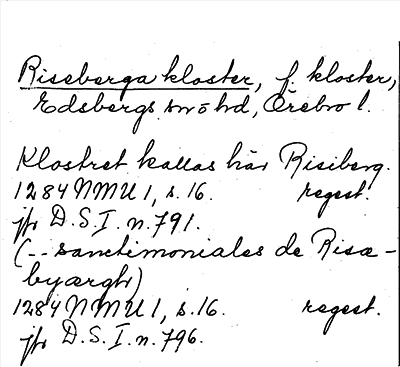 Riseberga kloster, f. kloster,
Edsbergs sn o hd, Örebro l.
Klostret kallas här Risiberg.
1284 NMU 1, s. 16. regest.
jfr D.S.I. n. 791.
(-- sanctimoniales de Risæ-
byærgh)
1284 NMU 1, s. 16. regest.
jfr D.S.I. n. 796.